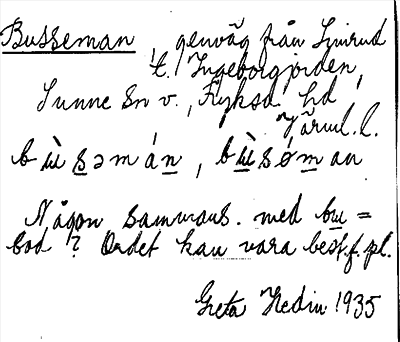 Busseman, genväg från Smirud
t. Ingeborgjorden,
Sunne sn v., Fryksd. hd
Värml. l.
bɯ̀səmán, bɯ̀sǿman
Någon sammans. med bu =
bod? Ordet kan vara best.f.pl.
Greta Hedin 1935